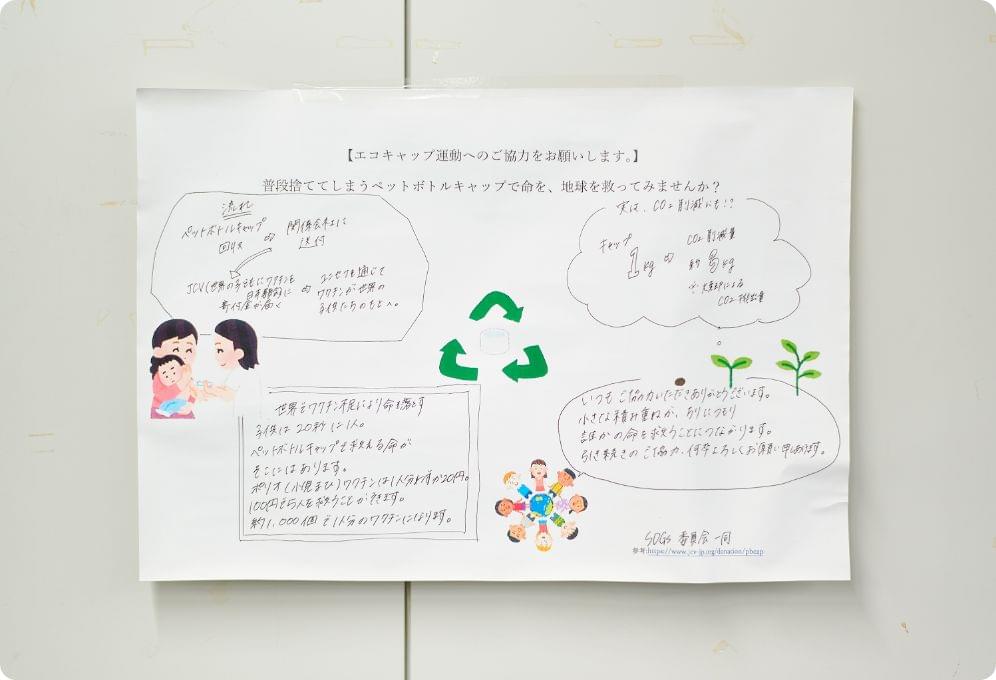 【エコキャップ運動へのご協力をお願いします。】
普段捨ててしまうペットボトルキャップで命を、地球を救ってみませんか？
流れ
ペットボトルキャップ
回収
⇨
関係会社に
送付
JCV(世界の子どもにワクチンを
日本委員会)に
寄付金が届く
⇨
ユニセフを通じて
ワクチンが世界の
子供たちのもとへ。
実は、CO2削減にも!?
キャップ
1kg
⇨
CO2削減量
約3kg
※焼却による
CO2排出量
世界でワクチン不足により命を落とす
子供は20秒に1人。
ペットボトルキャップで救える命が
そこにはあります。
ポリオ(小児まひ)ワクチンは1人分わずか20円。
100円で5人を救うことができます。
約1,000個で1人分のワクチンになります。
いつもご協力いただきありがとうございます。
小さな積み重ねが、
誰かの命を救うことにつながります。
引き続きのご協力、何卒よろしくお願い申しあげます。
SDGs 委員会一同
参考:https://www.jcv-jp.org/donation/pbcap